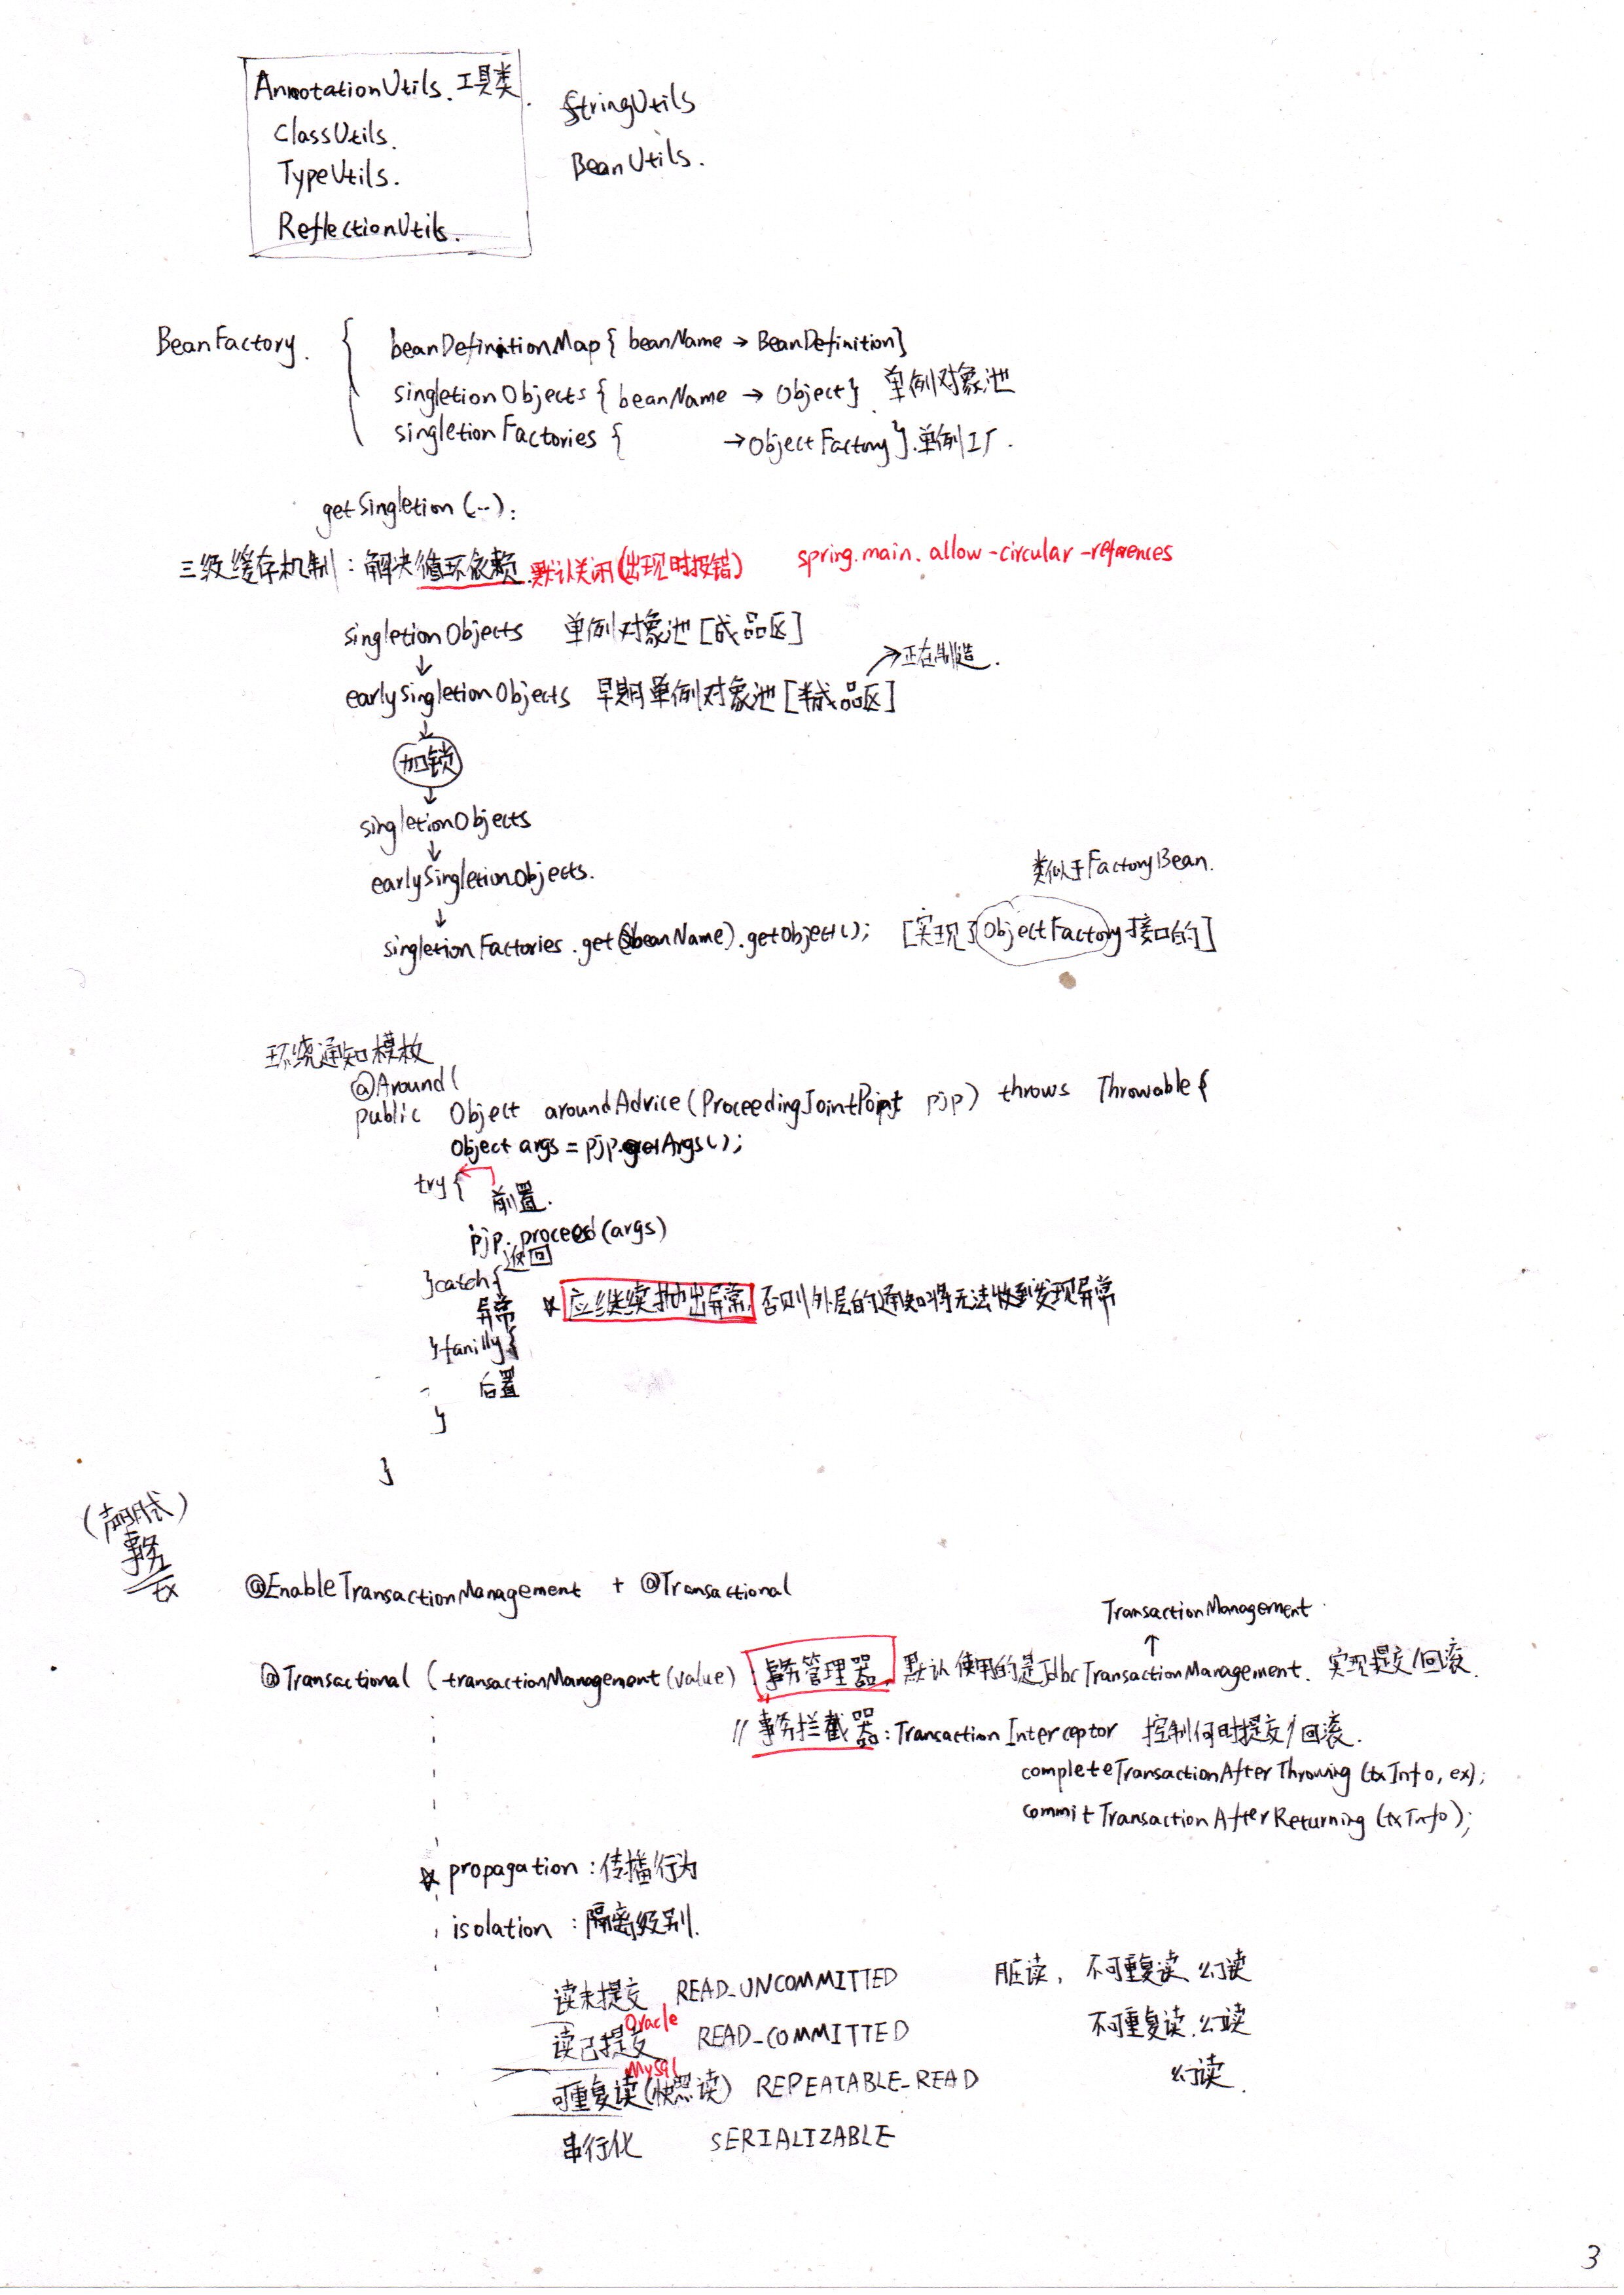 AnnotationUtils. 工具类.
ClassUtils.
TypeUtils.
ReflectionUtils.
StringUtils
BeanUtils.
BeanFactory. { beanDefinitionMap { beanName → BeanDefinition}
singletionObjects { beanName → Object}. 单例对象池
singletionFactories { → ObjectFactory}. 单例工厂.
getSingletion (...):
三级缓存机制: 解决循环依赖. 默认关闭(出现时报错) spring.main.allow-circular-references
singletionObjects 单例对象池 [成品区]
↓ ↗正在制造.
earlySingletionObjects 早期单例对象池 [半成品区]
↓
加锁
↓
singletionObjects
↓
earlySingletionObjects.
↓ 类似于FactoryBean.
singletionFactories.get(beanName).getObject(); [实现了ObjectFactory接口的]
环绕通知模板
@Around(
public Object aroundAdvice(ProceedingJointPoint pjp) throws Throwable {
Object args = pjp.getArgs();
try{
前置.
pjp.proceed(args)
返回
}catch{
异常 ☆ 应继续抛出异常, 否则外层的通知将无法收到发现异常
}fanilly{
后置
}
}
(声明式)
事务
tx
@EnableTransactionManagement + @Transactional
TransactionManagement
↑
@Transactional (transactionManagement(value) : 事务管理器, 默认使用的是JdbcTransactionManagement. 实现提交/回滚.
// 事务拦截器: TransactionInterceptor 控制何时提交/回滚.
completeTransactionAfterThrowing (txInfo, ex);
commitTransactionAfterReturning (txInfo);
☆ propagation : 传播行为
isolation : 隔离级别.
读未提交 READ_UNCOMMITTED 脏读, 不可重复读、幻读
Oracle
读已提交 READ_COMMITTED 不可重复读、幻读
MySql
可重复读(快照读) REPEATABLE_READ 幻读.
串行化 SERIALIZABLE
3